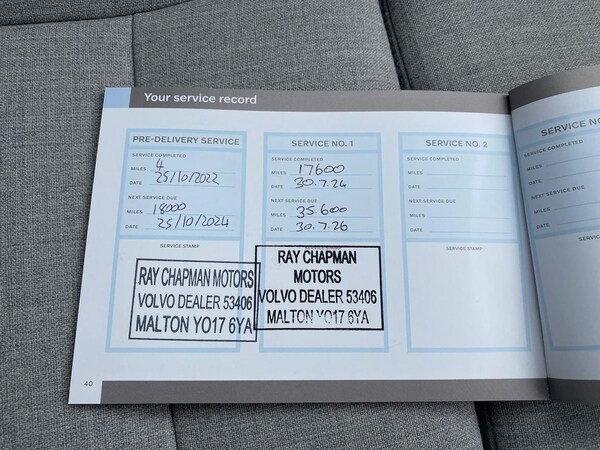 Your service record
PRE-DELIVERY SERVICE
SERVICE COMPLETED
MILES 4
DATE 25/10/2022
NEXT SERVICE DUE
MILES 18000
DATE 25/10/2024
SERVICE STAMP
RAY CHAPMAN MOTORS
VOLVO DEALER 53406
MALTON YO17 6YA
SERVICE NO. 1
SERVICE COMPLETED
MILES 17600
DATE 30.7.24
NEXT SERVICE DUE
MILES 35.600
DATE 30.7.26
RAY CHAPMAN
MOTORS
VOLVO DEALER 53406
MALTON YO17 6YA
SERVICE NO. 2
SERVICE COMPLETED
MILES
DATE
NEXT SERVICE DUE
MILES
DATE
SERVICE STAMP
SERVICE NO
SERVICE COMPLETED
MILES
DATE
NEXT SERVICE DUE
MILES
DATE
40